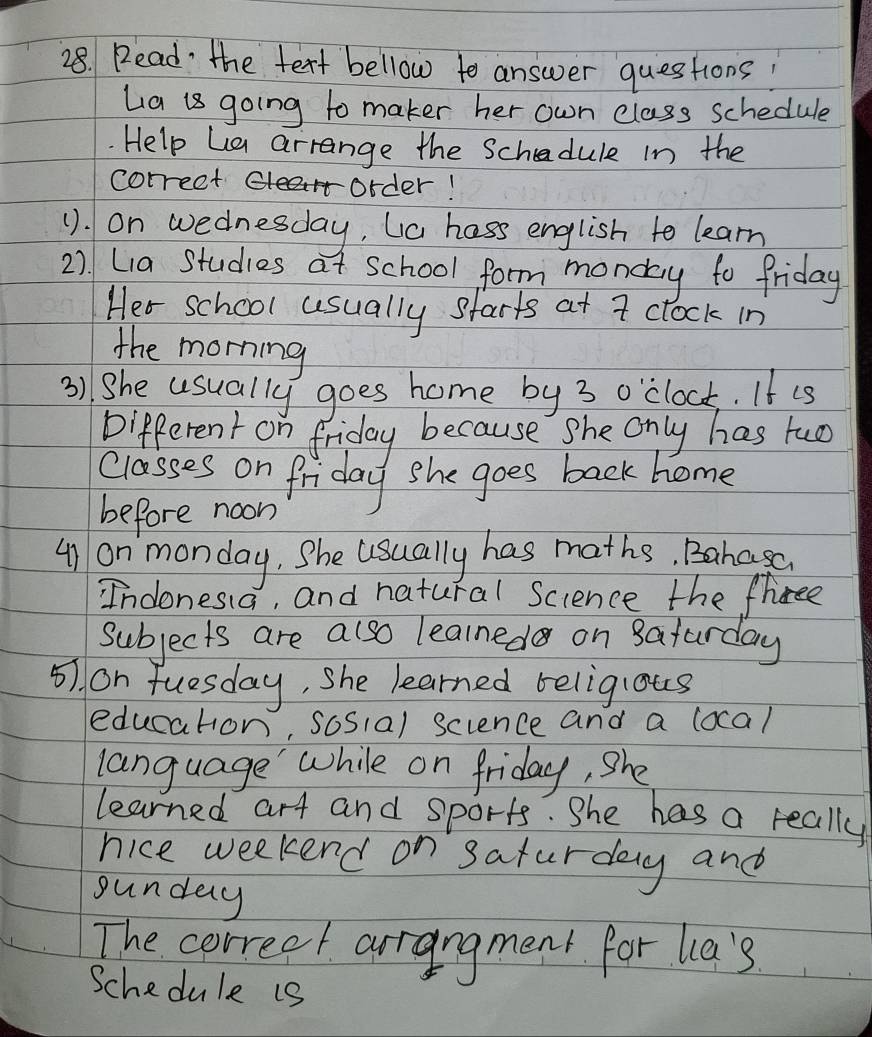 28. Read. the text bellow to answer questions!
Lia is going to maker her own class schedule
. Help Lia arrange the Schedule in the
correct Clearr order!
1). on wednesday, Lia hass english to learn
2). Lia Studies at school form monday to friday
Her school usually starts at 7 clock in
the morning
3) She usually goes home by 3 o'clock. It is
Different on friday because she only has two
Classes on friday she goes back home
before noon
4) on monday, She usually has maths, Bahasa
Indonesia, and natural Science the three
subjects are also leained on saturday
5). On tuesday, she learned religious
education, sosial science and a local
language while on friday, she
learned art and sports. She has a really
nice weekend on saturday and
sunday
The correct arrangment for lia's
Schedule is